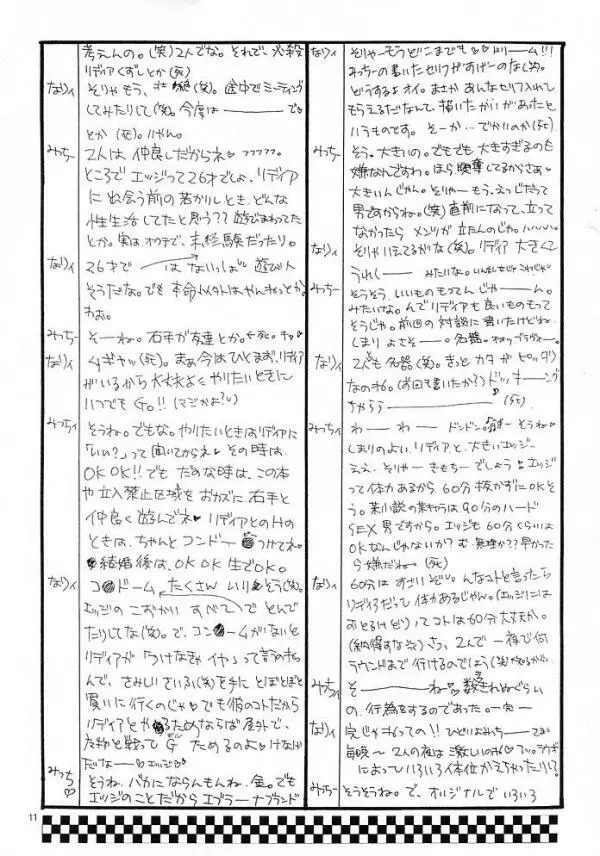 考えんの。(笑)2人でな。それで、必殺
リディアくずしとか(死)
なりィ そりゃもう、壮絶(笑)。途中でミーティング
してみたりして(笑)。今度は――――でⓈ
とか(死)。いやん。
みちー 2人は仲良しだからネ♡フフフフフ。
ところでエッジって26才でしょ、リディア
に出会う前の若かりしとき、どんな
性生活してたと思う??遊びまわってた
とか。実は、オクテで、未経験だったり。
なりィ 26才で――はないっしょ 遊び人
そうだな。でも本命以外はやんねっとか。
わお。
みちー そーね。右手が友達とか。←死。チャ
なりィ ムギャッ(死)。まぁ今はひとまず、リディア
がいるから大丈夫よ やりたいときに
いつでもGo!!(マジかよ?)
みっちィ そうね。でもな。やりたいときはリディアに
「いい?」って聞いてからネ♡その時は、
OK OK!!でもだめな時は、この本
や立入禁止区域をおカズに、右手と
仲良く遊んでネ♡リディアとのHの
ときは、ちゃんとコンドーつけてネ。
結婚後は、OK OK 生でOK。
なりィ コドーム たくさんいりそう(笑)。
エッジのこおかいすべてでとんで
たりしてな(笑)。で、コンームがないと
リディアが「つけなきゃイヤ」って言うのも
んで、さみしいさいふ(笑)を手にとぼとぼと
買いに行くのじゃ♡でも彼のコトだから
リディアとやるためならば屋外で、
怪物と戦ってGためるのよ♡けなげ
だな――♡エッジ♡
みっち♡ そうね、バカにならんもんね、金。でも
エッジのことだからエブラーナブランド
なりィ そりゃーもうどこまでも♡ドリーム!!!
みっちーの書いたセリフがすげーのなし(笑)。
どうするよオイ。まさかあんなセリフ入れて
もらえるだなんて、描いたかいがあったと
いうものです。そーか…でかいのか(死)
みちー そう。大きいの。でもでも大きすぎるのも
嫌なんですわ。ほら興奮してるからさぁ
大きいんじゃん。そりゃーもう。えっじだって
男ですからね。(笑)直前になって、立って
なかったらメンツが立たんのじゃ。ハハハい。
なりィ そりゃいえてるがな(笑)。リディア大きくて
うれしー――みたいな。いんらん女じゃこれじゃ
みちー そうそう、いいものもってんじゃーん。
みたいな。んでリディアも良いものもって
そうじゃ。前回の対談に書いたけどね。
しまりよさそー。名器。オオッブラヴォー。
なりィ 2人とも名器(笑)。きっとカタがピッタシ
なのね。(お回も書いたか?)ドッキーング
ちゃらら――――(死)
みっちィ わ――わ―― ドンドン。そうね。
しまりのよいリディアと、大きいエッジ。
ええ、そりゃーきもちーでしょう♡エッジ
って体力あるから60分抜かずにOKそ
う。某小説の某キャラは90分のハード
SEX男ですから。エッジも60分くらいは
OKなんじゃないか?む、無理か??早かった
ら嫌だねー。(死)
なりィ 60分はすごいぞい。んなコト言ったら
リディアだって体力あるじゃん。(エッジには
おとるけど)ってコトは60分大丈夫か。
(納得すな笑)さっ、2人で一夜で何
ラウンドまで行けるのでしょう(笑)
みちィ そ――――ね♡寝されぬくらい
の、行為をするのであった。―完―
なりィ 完じゃねっての!!ひどいよみちーてば
毎晩~2人の夜は激しいのね♡フッ。ラウンド
によっていろいろ体位がえちゃったりして。
みちー そうそうね。で、オリジナルでいろいろ
11